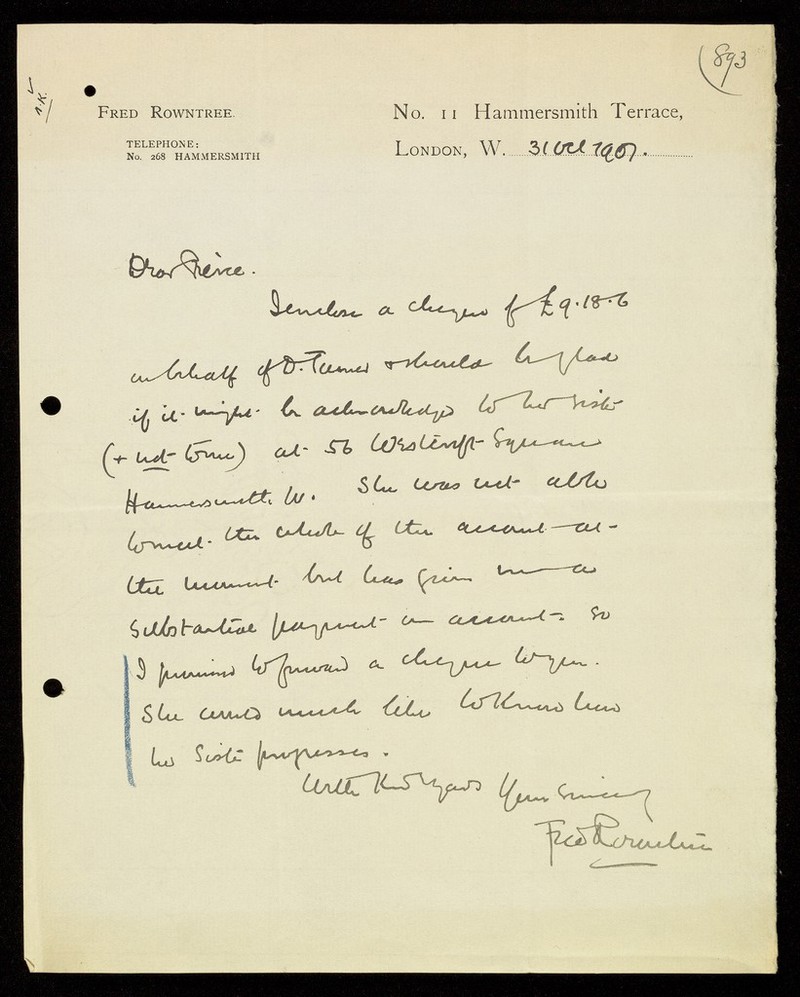 (893
FRED ROWNTREE.
No. 11 Hammersmith Terrace,
TELEPHONE:
No. 268 HAMMERSMITH
LONDON, W. 31 Oct 1907.
Dear Pierce.
I enclose a cheque of £9.18.6
on behalf of D. Turner & should be glad
if it might be acknowledged to her sister
(& not to me) at 56 Westcroft Square
Hammersmith W. She was not able
to meet the whole of the account at
the moment but has given me a
substantial payment on account so
I promised to forward a cheque to you.
She would much like to know how
her sister progresses.
With kind regards Yours sincerely
Fred Rowntree